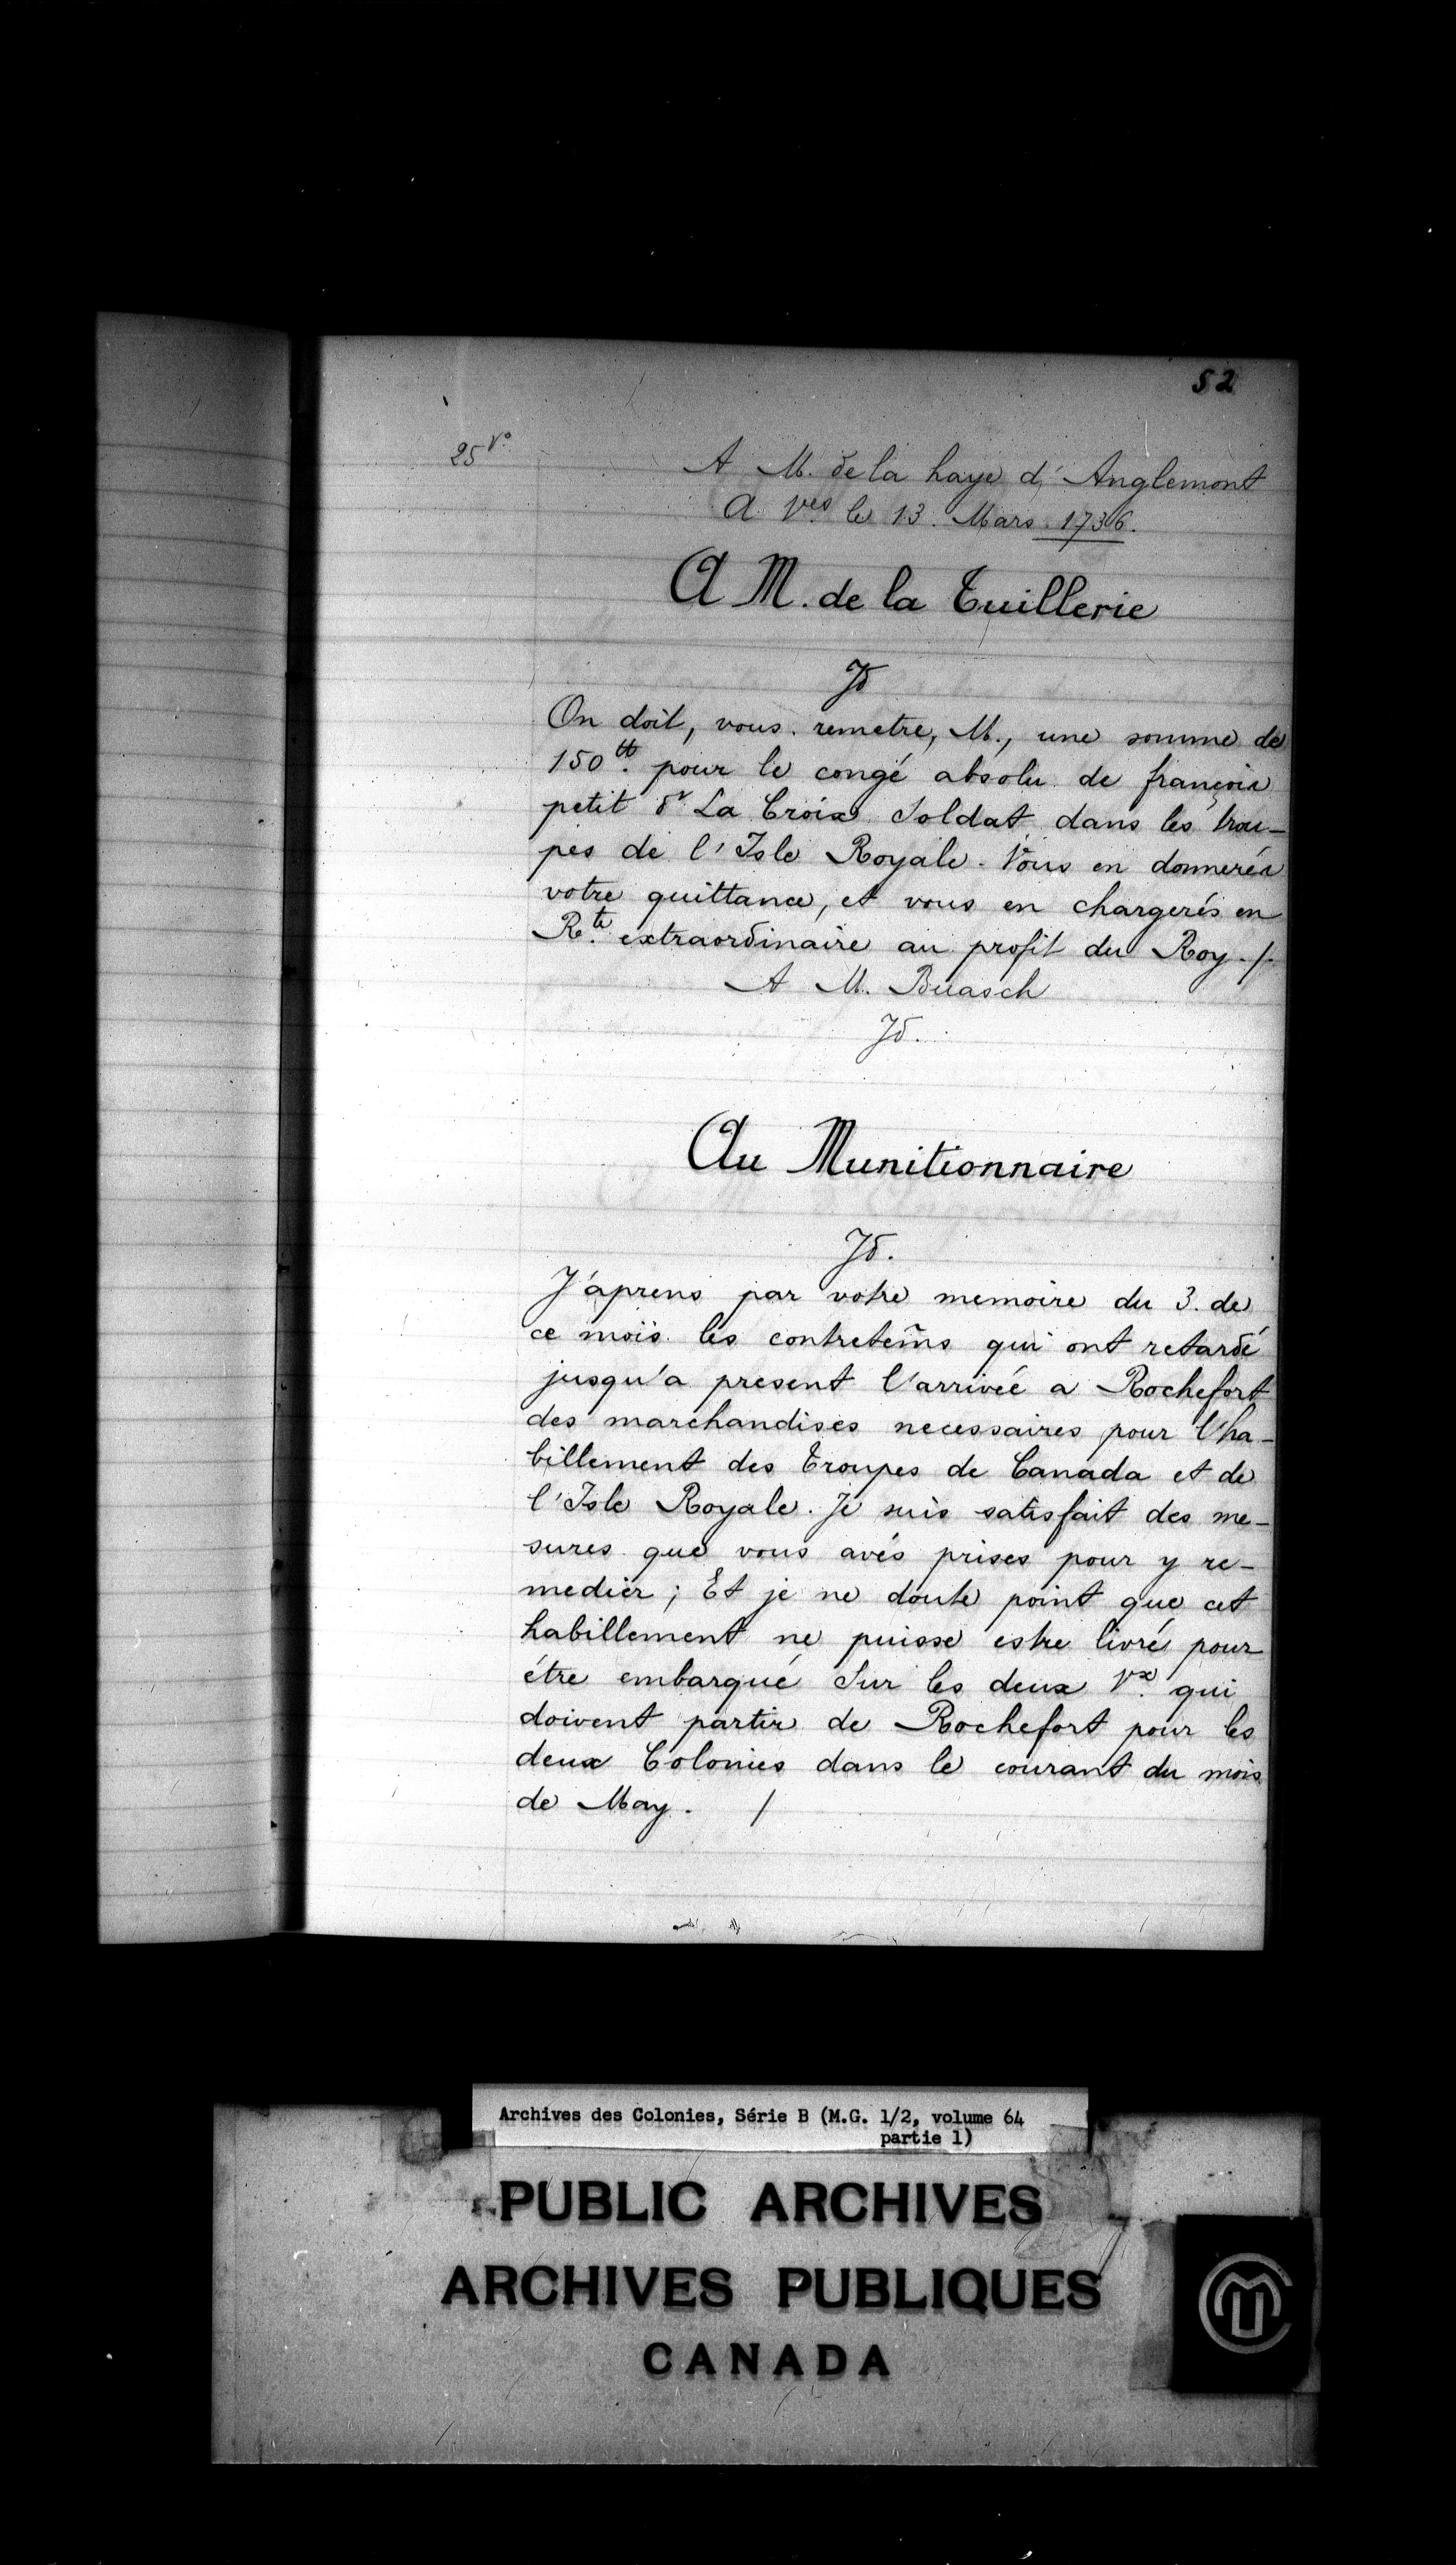 52
25 vo
A M. de la haye d'Anglemont
A Ves le 13. Mars 1736.
A M. de la Tuillerie
Jd
On doit, vous remetre, M., une somme de
150tt. pour le congé absolu de françois
petit dt La Croix Soldat dans les trou-
pes de l'Isle Royale. Vous en donnerés
votre quittance, et vous en chargerés en
Rte. extraordinaire au profit du Roy ./.
A M. Buasch
Jd.
Au Munitionnaire
Jd.
J'aprens par votre memoire du 3. de
ce mois les contretem̃s qui ont retardé
jusqu'a present l'arrivée a Rochefort
des marchandises necessaires pour l'ha-
billement des Troupes de Canada et de
l'Isle Royale. Je suis satisfait des me-
sures que vous avés prises pour y re-
medier ; Et je ne doute point que cet
habillement ne puisse estre livré pour
étre embarqué Sur les deux Vx. qui
doivent partir de Rochefort pour les
deux Colonies dans le courant du mois
de May. /
Archives des Colonies, Série B (M.G. 1/2, volume 64
partie 1)
PUBLIC ARCHIVES
ARCHIVES PUBLIQUES
CANADA